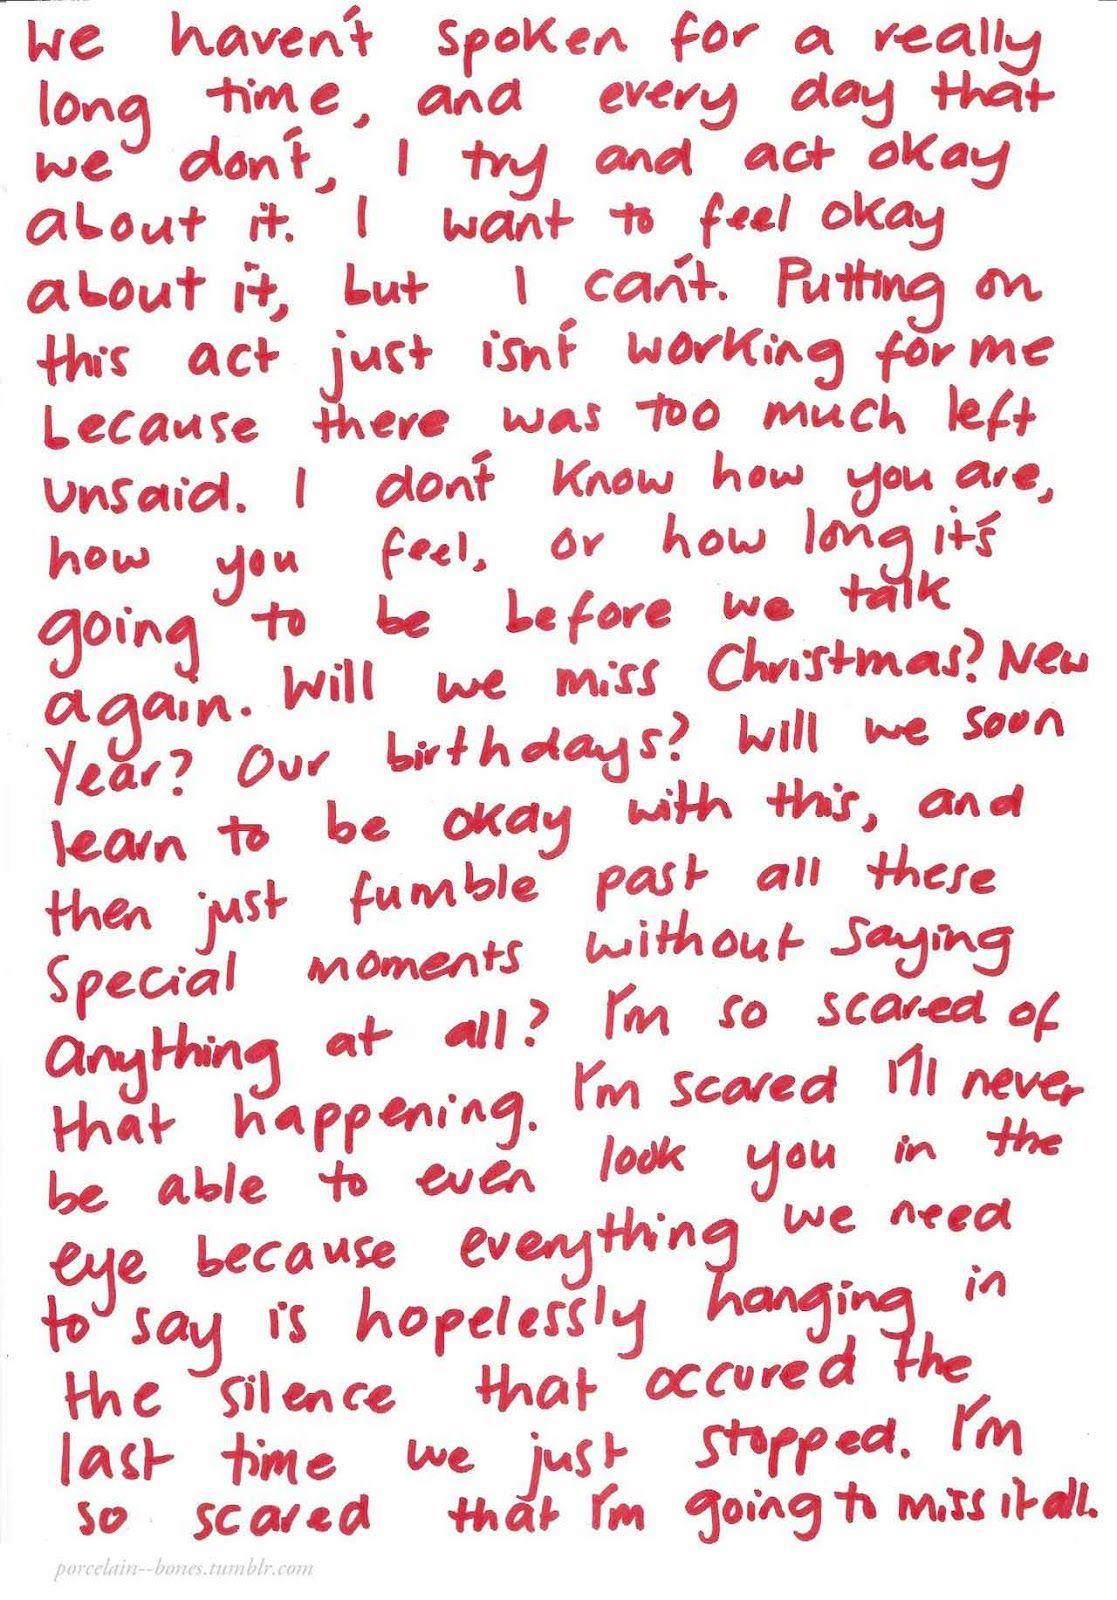 We haven't spoken for a really
long time, and every day that
we don't, I try and act okay
about it. I want to feel okay
about it, but I can't. Putting on
this act just isn't working for me
because there was too much left
unsaid. I don't know how you are,
how you feel, or how long it's
going to be before we talk
again. Will we miss Christmas? New
Year? Our birthdays? Will we soon
learn to be okay with this, and
then just fumble past all these
special moments without saying
anything at all? I'm so scared of
that happening. I'm scared I'll never
be able to even look you in the
eye because everything we need
to say is hopelessly hanging in
the silence that occured the
last time we just stopped. I'm
so scared that I'm going to miss it all.
porcelain--bones.tumblr.com